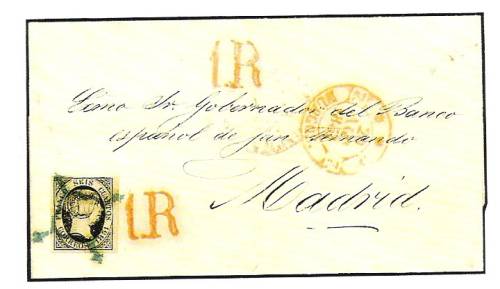 1R
Exmo Sr. Gobernador del Banco
español de San Fernando
Madrid.
SEIS CUARTOS
1R